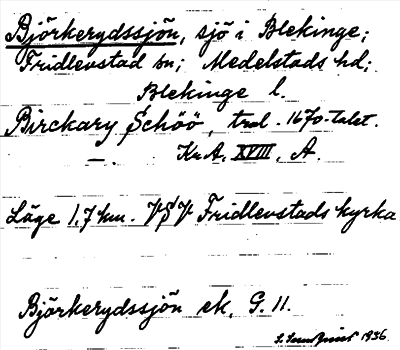 Björkerydssjön, sjö i Blekinge;
Fridlevstad sn; Medelstads hd;
Blekinge l.
Birckary Schöö, trol. 1670-talet.
— . Kr.A. XVIII, A.
Läge 1,7 km. VSV Fridlevstads kyrka
Björkerydssjön ek, G. 11.
1936